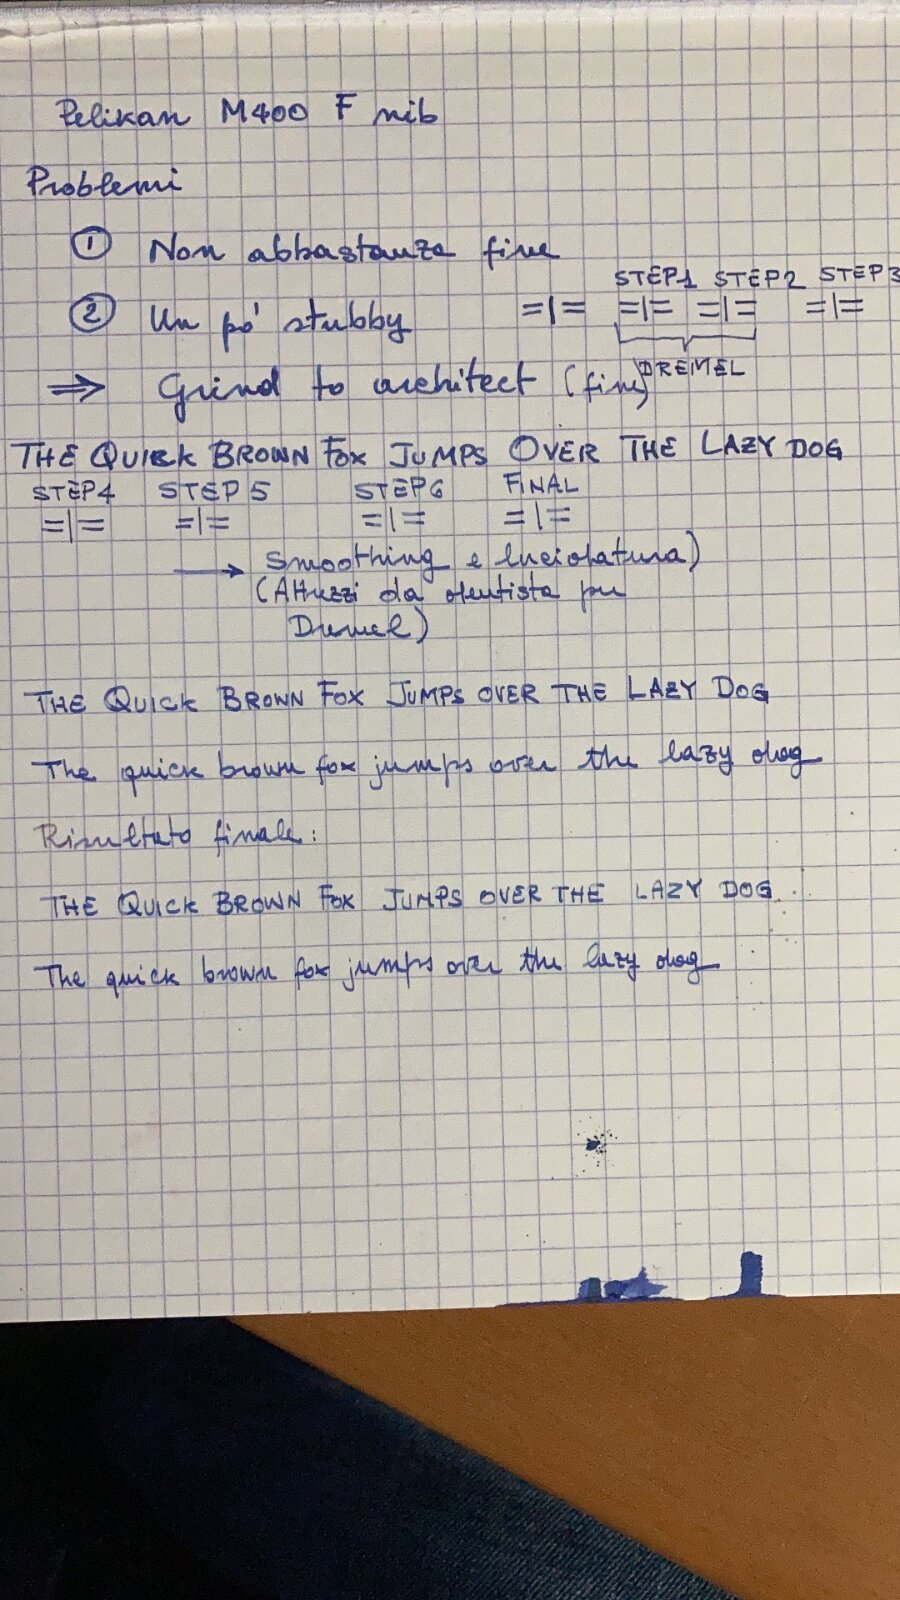 Pelikan M400 F nib
Problemi
① Non abbastanza fine
STEP1 STEP2 STEP3
② Un pó stubby =|= =|= =|= =|=
DREMEL
⇒ Grind to architect (fine)
THE QUICK BROWN FOX JUMPS OVER THE LAZY DOG
STEP4 STEP5 STEP6 FINAL
=|= =|= =|= =|=
→ Smoothing e lucidatura)
(Attrezzi da dentista per
Dremel)
THE QUICK BROWN FOX JUMPS OVER THE LAZY DOG
The quick brown fox jumps over the lazy dog
Risultato finale:
THE QUICK BROWN FOX JUMPS OVER THE LAZY DOG
The quick brown fox jumps over the lazy dog